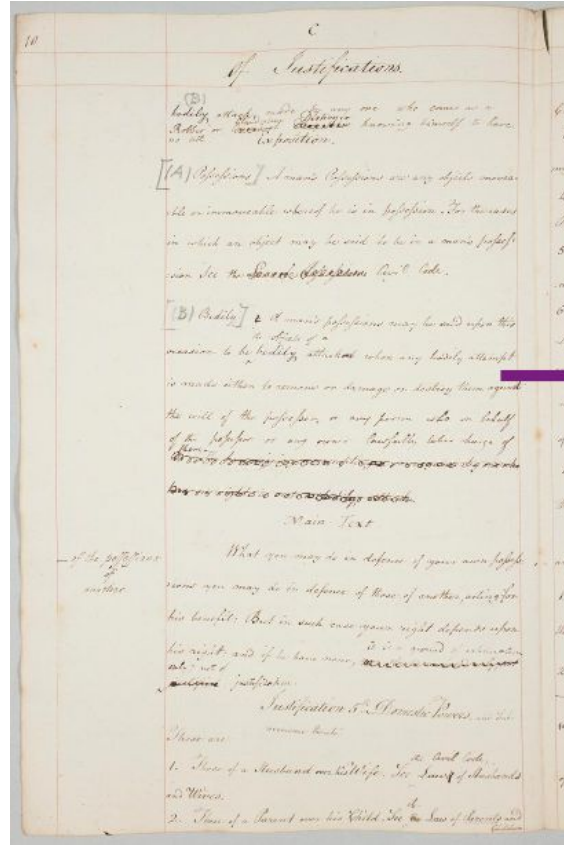 10
C
Of Justifications.
(B)
bodily attack, made by any one who comes as a
Robber or knowing himself to have
no
Exposition.
[(A) Possessions] A man's Possessions are any objects movea-
ble or immoveable whereof he is in possession. For the cases
in which an object may be said to be in a man's posses-
sion See the Civil Code.
[(B) Bodily] 2 A man's possessions may be said upon this
the object of a
occasion to be bodily attack when any bodily attempt
is made either to remove or damage or destroy them against
the will of the possessor, or any person who on behalf
of the possessor or any owner lawfully takes charge of
them.
Main Text
— of the possessions
of
another.
What you may do in defence of your own posses-
sions you may do in defence of those of another, acting for
his benefit: But in such case your right depends upon
his right: and if he have none, it is a ground of extenuation
only: not of
justification.
Justification 5th. Domestic Powers,
These are
1. Those of a Husband over his Wife. See Law of Husbands
the Civil Code,
and Wives.
2. Those of a Parent over his Child. See the Law of Parents and